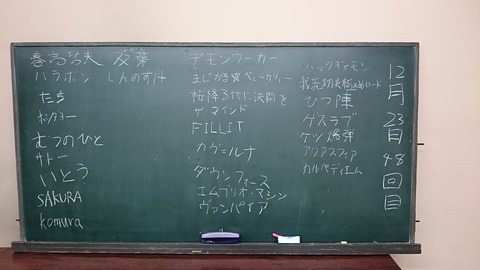 春高哲夫 双葉
ハラボン しんのすけ
たち
ボカチョー
むつのひと
サトー
いとう
SAKURA
komura
デモンワーカー
まじかる☆ベーカリー
桜降る代に決闘を
ザ・マインド
FILLIT
カヴェルナ
ダウンフォース
エムブリオ・マシン
ヴァンパイア
バックギャモン
我流功夫極めロード
ひつ陣
ゲスラブ
ケツ爆弾
アクアスフィア
カルペディエム
12月23日 48回目